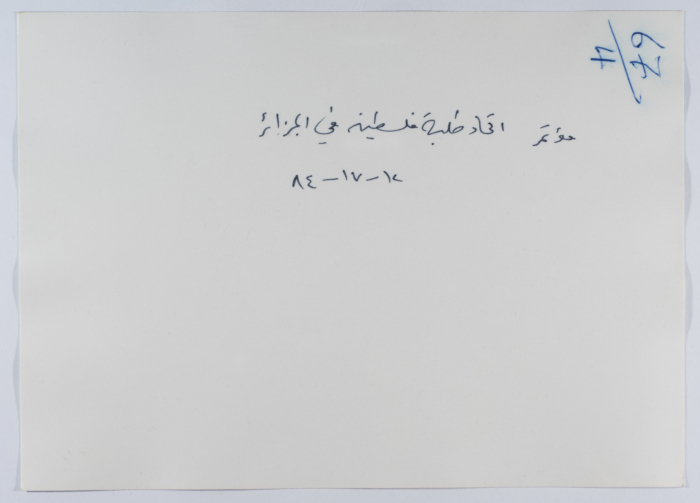 67/4
مؤتمر اتحاد طلبة فلسطين في الجزائر
٨٤-١٧-١٢